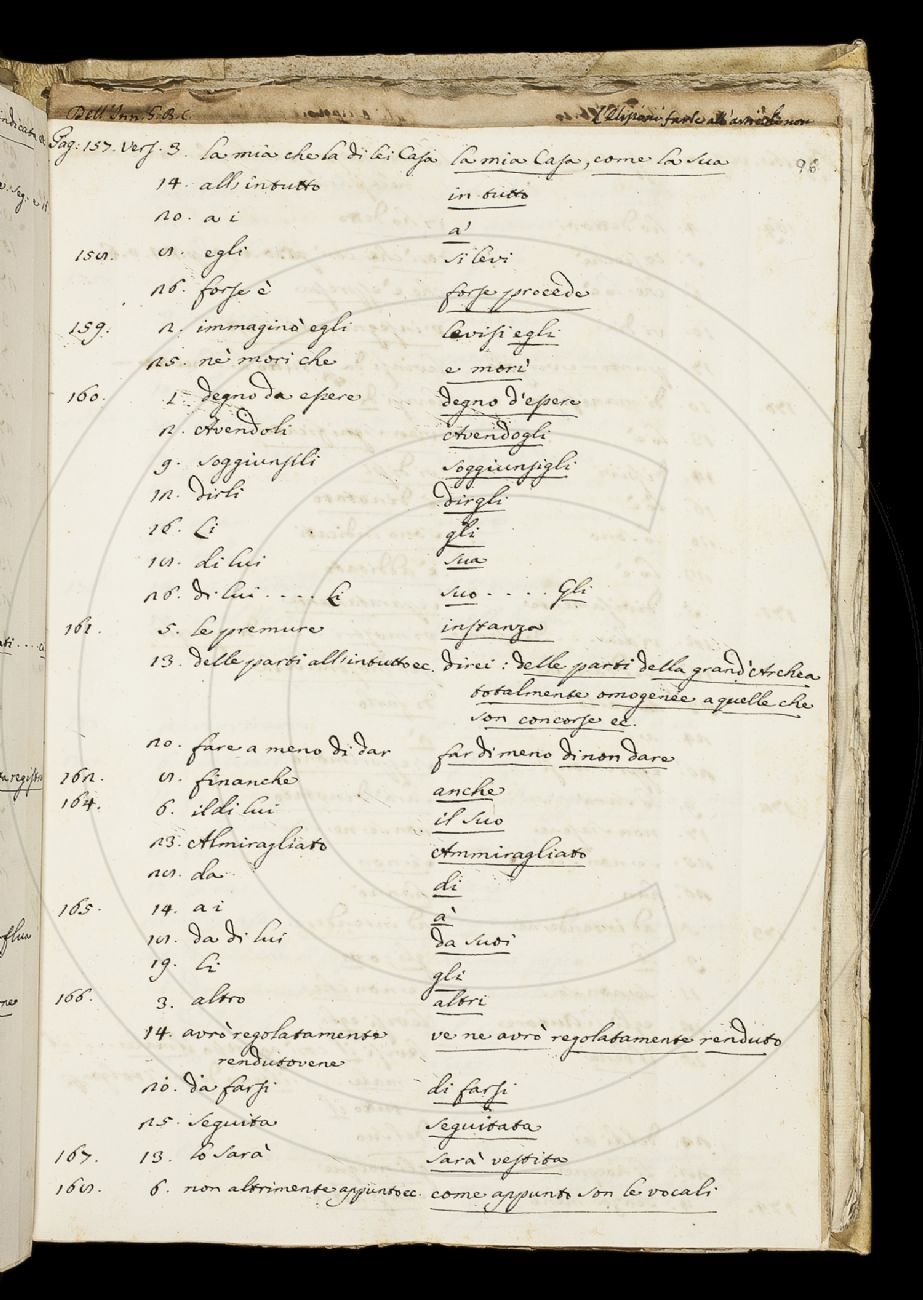 Pag: 157. Vers. 3. la mia che la di lei Casa la mia Casa, come la sua 96
14. all'intutto in tutto
20. a i a'
158. 8. egli si levi
26. forse è forse procede
159. 2. immaginò egli levisi egli
25. nè morì che e morì
160. 1. degno da essere degno d'essere
2. Avendoli Avendogli
9. soggiunsili soggiunsigli
12. dirli dirgli
16. Li gli
18. di lui sua
26. di lui .... Li suo .... Gli
161. 5. le premure instanza
13. delle parti all'intutto ec. direi: delle parti della grand'Archea
totalmente omogenee a quelle che
son concorse ec.
20. fare a meno di dar far di meno di non dare
162. 8. finanche anche
164. 6. il di lui il suo
23. Almiragliato Ammiragliato
28. da di
165. 14. a i a'
18. da di lui da suoi
19. Li gli
166. 3. altro altri
14. avrò regolatamente ve ne avrò regolatamente renduto
rendutovene
20. da farsi di farsi
25. seguita seguitata
167. 13. lo sarà sarà vestita
168. 6. non altrimente appunto ec. come appunto son le vocali